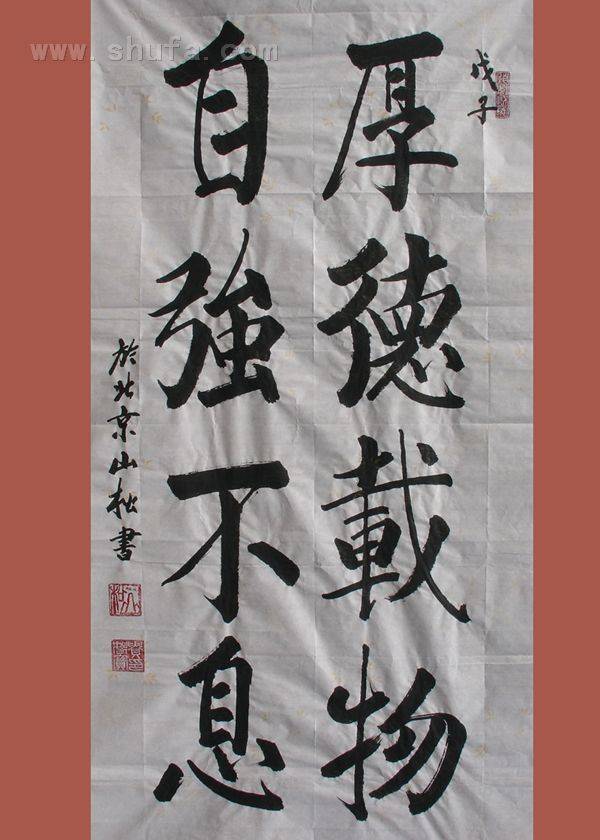 www.shufa.com
戊子
厚德載物
自強不息
於北京山松書